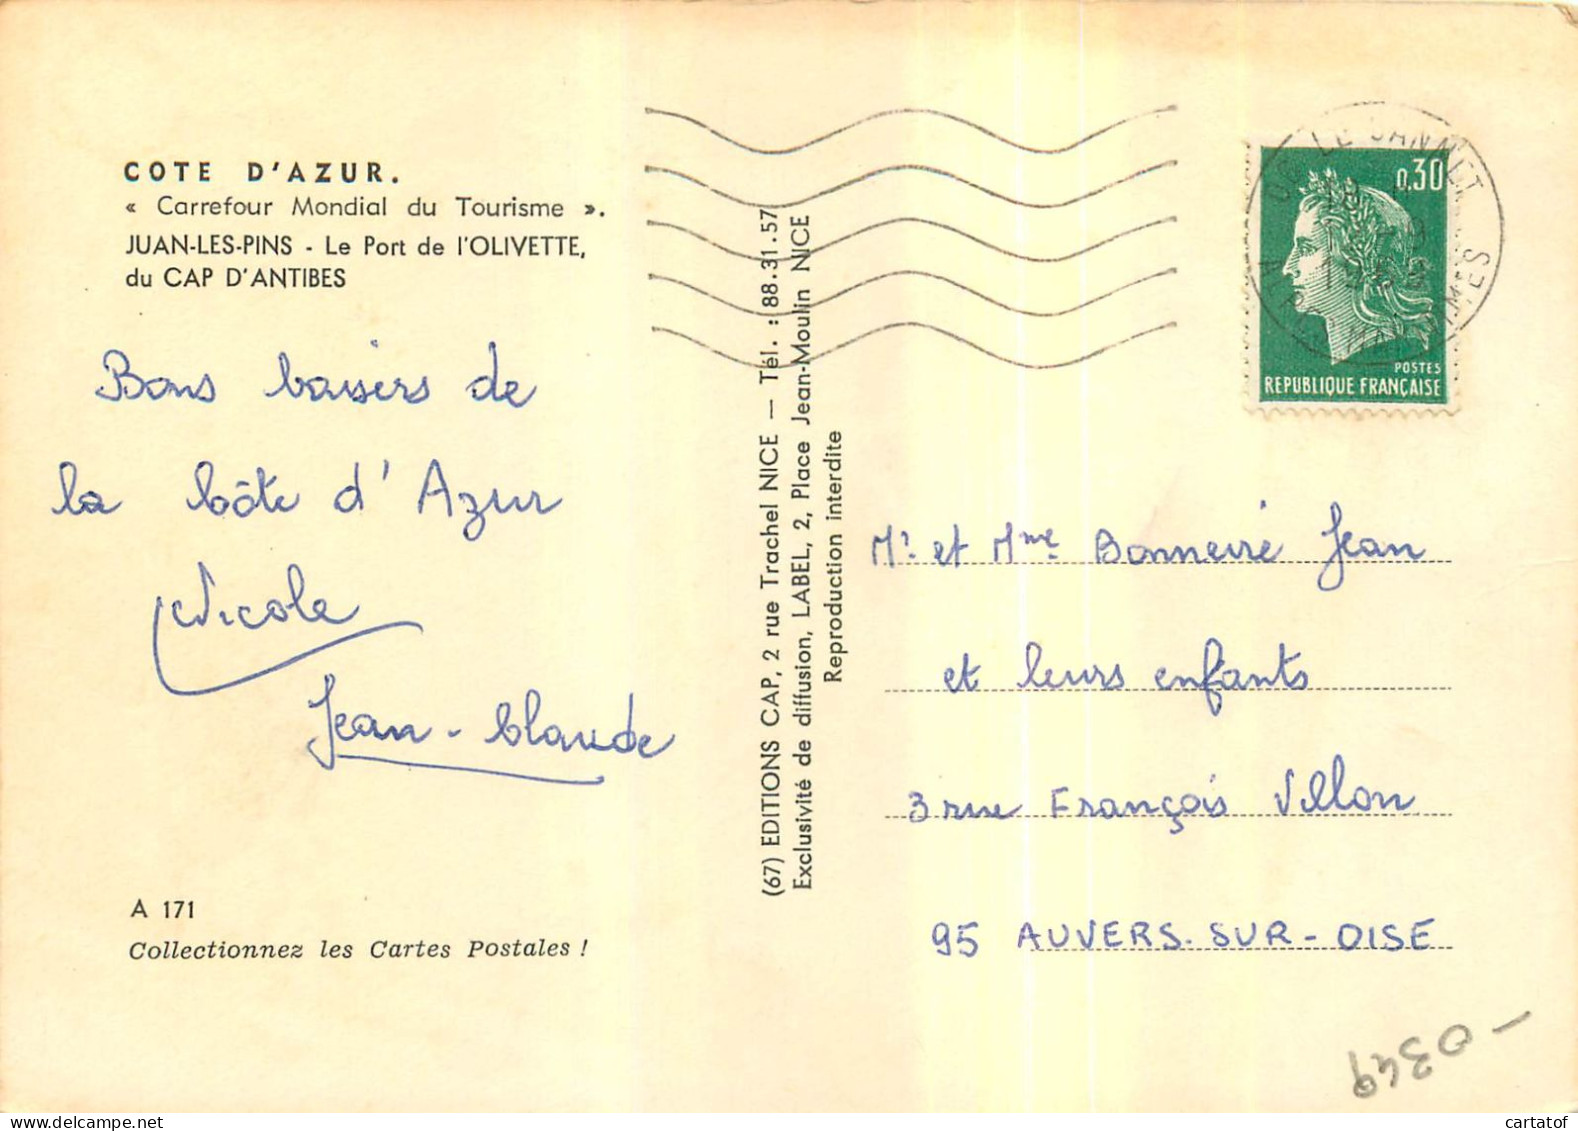 COTE D'AZUR.
« Carrefour Mondial du Tourisme ».
JUAN-LES-PINS - Le Port de l'OLIVETTE,
du CAP D'ANTIBES
Bons baisers de
la Côte d'Azur
Nicole
Jean-Claude
A 171
Collectionnez les Cartes Postales !
(67) EDITIONS CAP, 2 rue Trachel NICE — Tél. : 88.31.57
Exclusivité de diffusion, LABEL, 2, Place Jean-Moulin NICE
Reproduction interdite
LE CANNET
0,30
POSTES
REPUBLIQUE FRANÇAISE
Mr et Mme Bonneire Jean
et leurs enfants
3 rue François Villon
95 AUVERS-SUR-OISE
delcampe.net
cartatof